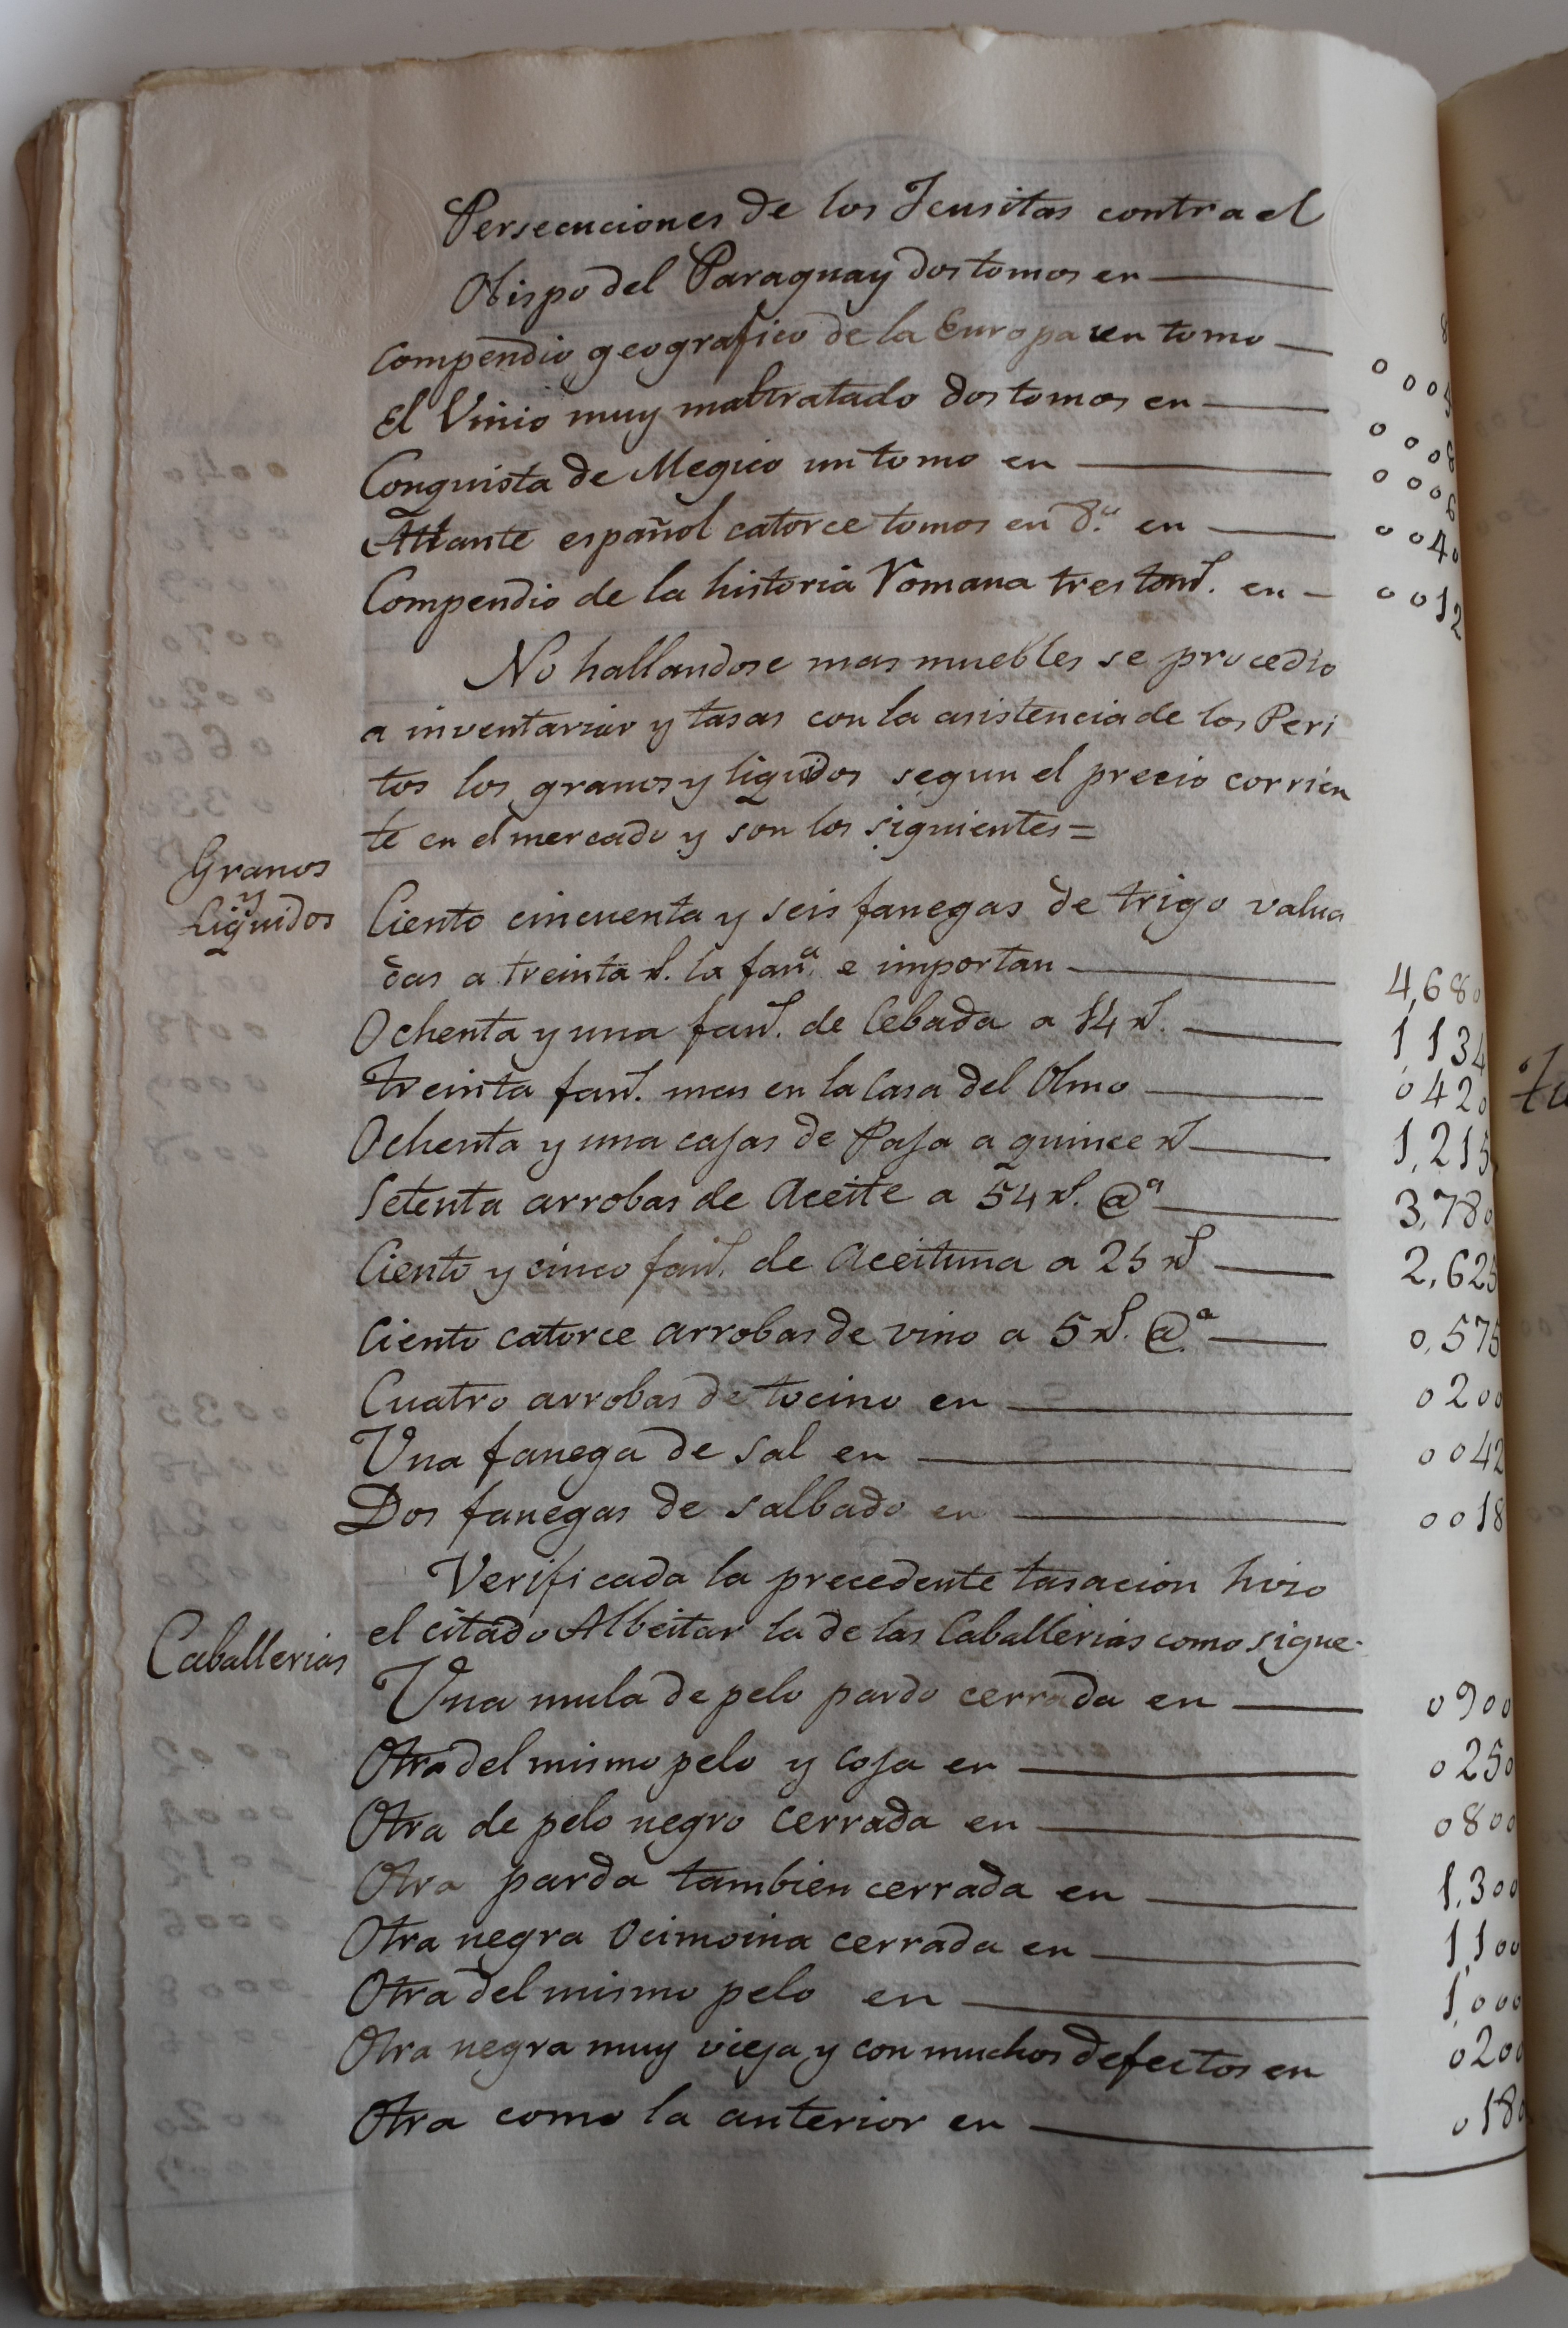 Persecuciones de los Jeusitas contra el
Obispo del Paraguay dos tomos en
Compendio geografico de la Europa un tomo
El Vinio muy maltratado dos tomos en 0004
Conquista de Megico un tomo en 0008
Atlante español catorce tomos en 8.º en 0040
Compendio de la historia Romana tres toms. en 0012
No hallandose mas muebles se procedio
a inventariar y tasas con la asistencia de los Peri
tos los granos y liquidos segun el precio corrien
te en el mercado y son los siguientes =
Granos
y
Liquidos
Ciento cincuenta y seis fanegas de trigo valua
das a treinta rs. la fanª. e importan 4,680
Ochenta y una fans. de Cebada a 14 rs. 1,134
Treinta fans. mas en la Casa del Olmo 0420
Ochenta y una cajas de Paja a quince rs 1,215
Setenta arrobas de Aceite a 54 rs. @ª 3,780
Ciento y cinco fans. de Aceituna a 25 rs 2,625
Ciento catorce arrobas de vino a 5 rs. @ª 0,575
Cuatro arrobas de tocino en 0200
Una fanega de sal en 0042
Dos fanegas de salbado en 0018
Verificada la precedente tasacion hizo
el citado Albeitar la de las Caballerias como sigue.
Caballerias
Una mula de pelo pardo cerrada en 0900
Otra del mismo pelo y coja en 0250
Otra de pelo negro cerrada en 0800
Otra parda tambien cerrada en 1,300
Otra negra cerrada en 1,100
Otra del mismo pelo en 1,000
Otra negra muy vieja y con muchos defectos en 0200
Otra como la anterior en 0180